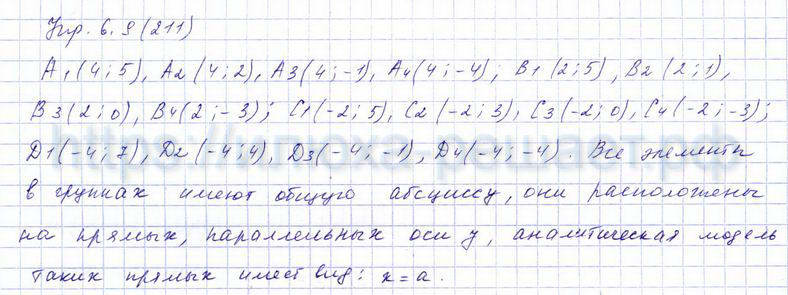 Упр. 6.9 (211)
A1 (4; 5), A2 (4; 2), A3 (4; -1), A4 (4; -4); B1 (2; 5), B2 (2; 1),
B3 (2; 0), B4 (2; -3); C1 (-2; 5), C2 (-2; 3), C3 (-2; 0), C4 (-2; -3);
D1 (-4; 7), D2 (-4; 4), D3 (-4; -1), D4 (-4; -4). Все элементы
в группах имеют общую абсциссу, они расположены
на прямых, параллельных оси y, аналитическая модель
таких прямых имеет вид: x = a.